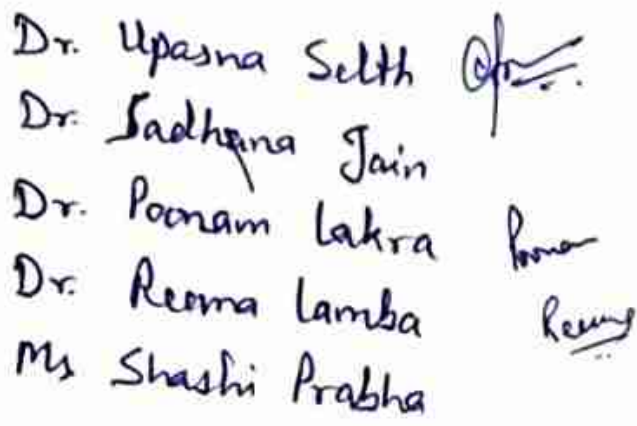 Dr. Upasna Selth
Dr. Sadhana Jain
Dr. Poonam Lakra Poonam
Dr. Reema Lamba Reema
Ms Shashi Prabha